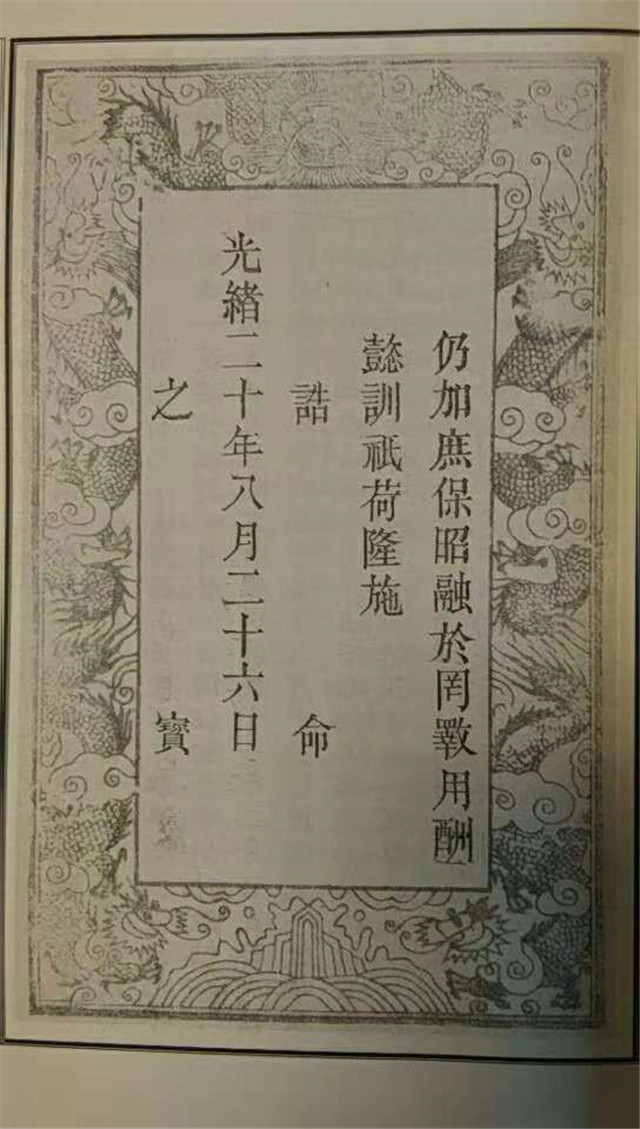 仍加庶保昭融於罔斁用酬
懿訓祇荷隆施
誥命
光緒二十年八月二十六日
之寶